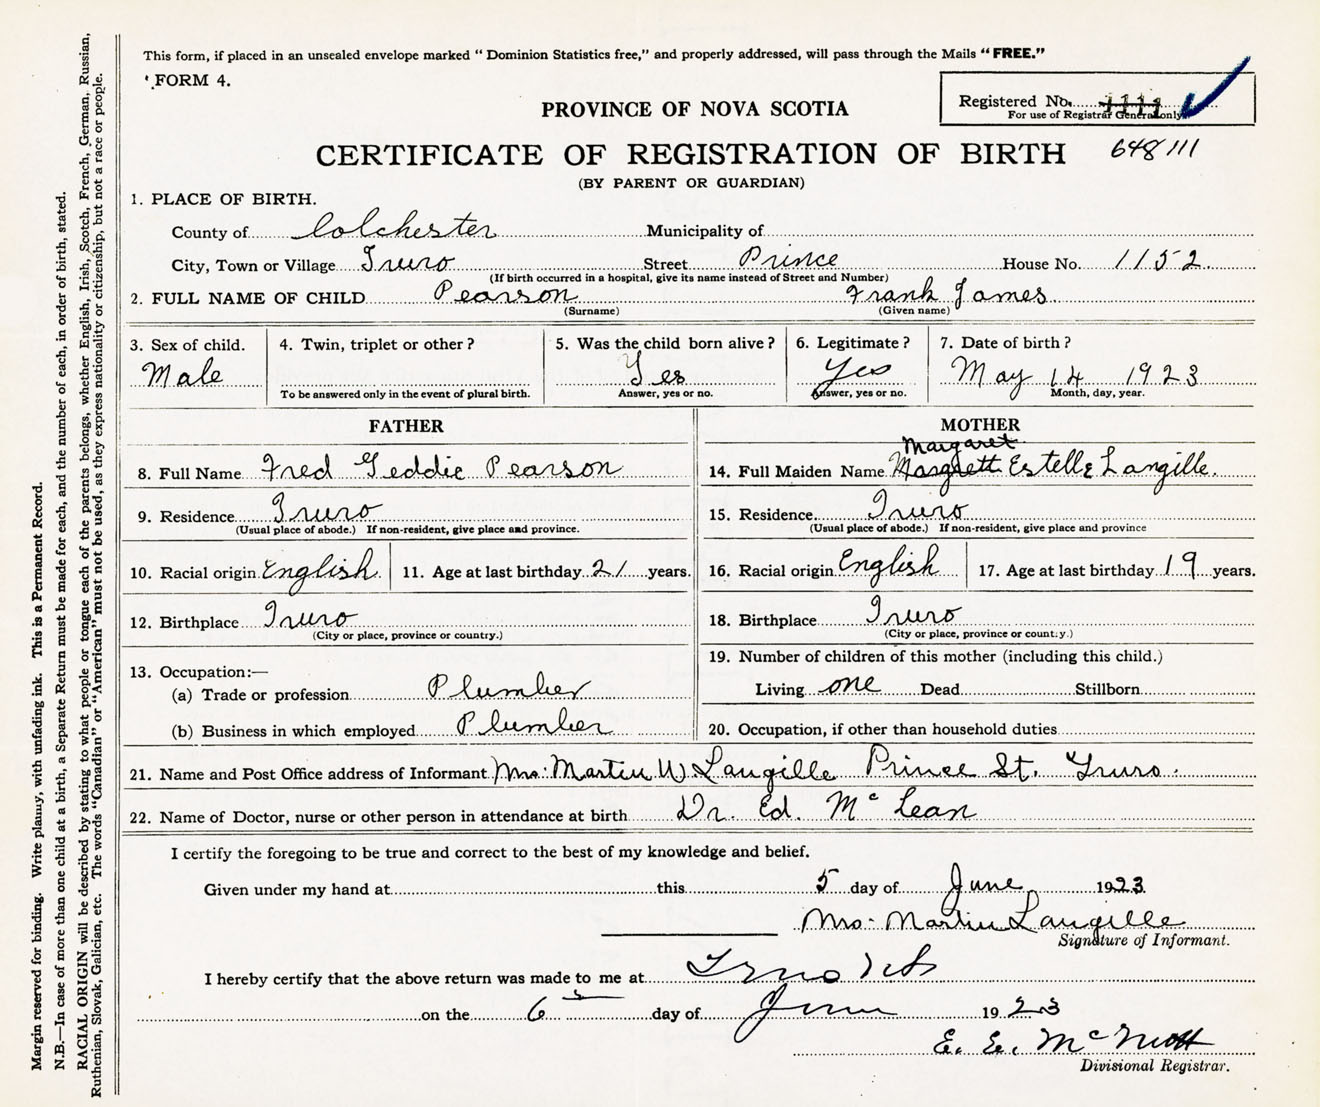 This form, if placed in an unsealed envelope marked "Dominion Statistics free," and properly addressed, will pass through the Mails "FREE."
FORM 4.
Registered No. 1111
For use of Registrar General only
PROVINCE OF NOVA SCOTIA
648111
CERTIFICATE OF REGISTRATION OF BIRTH
(BY PARENT OR GUARDIAN)
1. PLACE OF BIRTH.
County of Colchester Municipality of
City, Town or Village Truro Street Prince House No. 1152
(If birth occurred in a hospital, give its name instead of Street and Number)
2. FULL NAME OF CHILD Pearson Frank James
(Surname) (Given name)
3. Sex of child. 4. Twin, triplet or other? 5. Was the child born alive? 6. Legitimate? 7. Date of birth?
Male Yes Yes May 14 1923
To be answered only in the event of plural birth. Answer, yes or no. Answer, yes or no. Month, day, year.
FATHER
8. Full Name Fred Geddie Pearson
9. Residence Truro
(Usual place of abode.) If non-resident, give place and province.
10. Racial origin English 11. Age at last birthday 21 years.
12. Birthplace Truro
(City or place, province or country.)
13. Occupation:—
(a) Trade or profession Plumber
(b) Business in which employed Plumber
MOTHER
Margaret
14. Full Maiden Name Margrett Estelle Langille.
15. Residence Truro
(Usual place of abode.) If non-resident, give place and province
16. Racial origin English 17. Age at last birthday 19 years.
18. Birthplace Truro
(City or place, province or country.)
19. Number of children of this mother (including this child.)
Living one Dead Stillborn
20. Occupation, if other than household duties
21. Name and Post Office address of Informant Mrs. Martin W Langille Prince St. Truro.
22. Name of Doctor, nurse or other person in attendance at birth Dr. Ed. McLean
I certify the foregoing to be true and correct to the best of my knowledge and belief.
Given under my hand at this 5 day of June 1923
Mrs. Martin Langille
Signature of Informant.
I hereby certify that the above return was made to me at Truro NS
on the 6 day of June 1923
E. E. McNutt
Divisional Registrar.
Margin reserved for binding. Write plainly, with unfading ink. This is a Permanent Record.
N.B.—In case of more than one child at a birth, a Separate Return must be made for each, and the number of each, in order of birth, stated.
RACIAL ORIGIN will be described by stating to what people or tongue each of the parents belongs, whether English, Irish, Scotch, French, German, Russian,
Ruthenian, Slovak, Galician, etc. The words "Canadian" or "American" must not be used, as they express nationality or citizenship, but not a race or people.